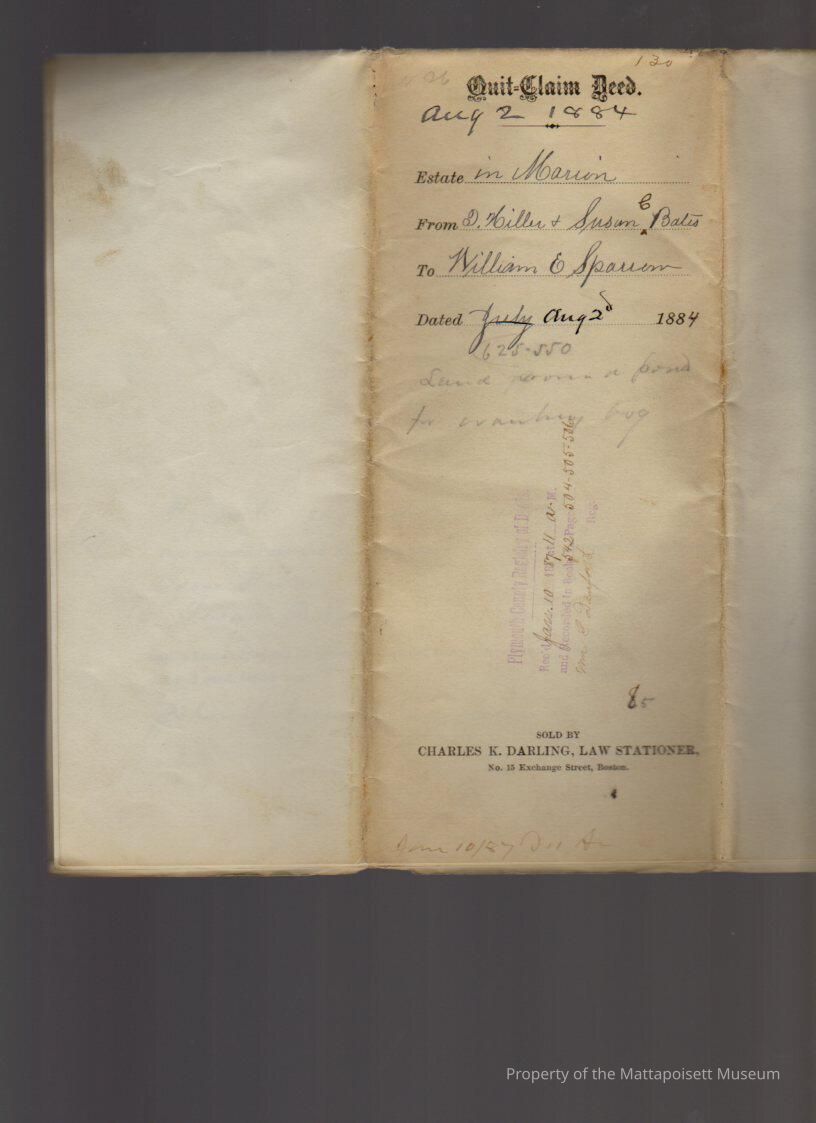 130
Quit-Claim Deed.
Aug 2 1884
Estate in Marion
From D. Hiller & Susan C Bates
To William E Sparrow
Dated July Aug 2d 1884
625-550
Land a pond
for cranberry bog
Plymouth County Registry of Deeds.
Rec'd Jan. 10 1887 at 11 A. M.
and Recorded in Book 542 Page 504-505-506
Wm S Danforth Reg.
85
SOLD BY
CHARLES K. DARLING, LAW STATIONER,
No. 15 Exchange Street, Boston.
Jan 10/87
Property of the Mattapoisett Museum